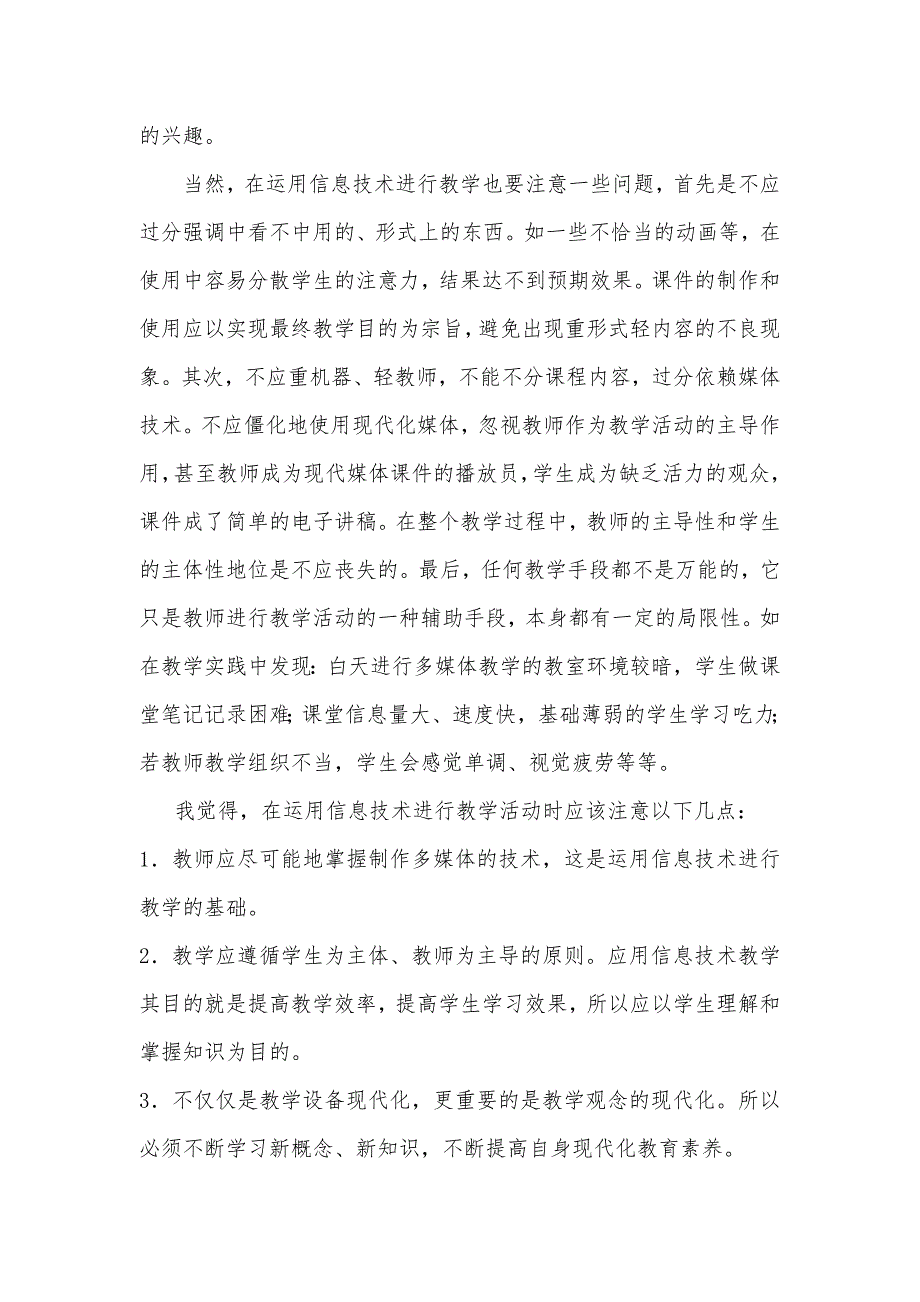 的兴趣。
当然，在运用信息技术进行教学也要注意一些问题，首先是不应
过分强调中看不中用的、形式上的东西。如一些不恰当的动画等，在
使用中容易分散学生的注意力，结果达不到预期效果。课件的制作和
使用应以实现最终教学目的为宗旨，避免出现重形式轻内容的不良现
象。其次，不应重机器、轻教师，不能不分课程内容，过分依赖媒体
技术。不应僵化地使用现代化媒体，忽视教师作为教学活动的主导作
用，甚至教师成为现代媒体课件的播放员，学生成为缺乏活力的观众，
课件成了简单的电子讲稿。在整个教学过程中，教师的主导性和学生
的主体性地位是不应丧失的。最后，任何教学手段都不是万能的，它
只是教师进行教学活动的一种辅助手段，本身都有一定的局限性。如
在教学实践中发现：白天进行多媒体教学的教室环境较暗，学生做课
堂笔记记录困难；课堂信息量大、速度快，基础薄弱的学生学习吃力；
若教师教学组织不当，学生会感觉单调、视觉疲劳等等。
我觉得，在运用信息技术进行教学活动时应该注意以下几点：
1．教师应尽可能地掌握制作多媒体的技术，这是运用信息技术进行
教学的基础。
2．教学应遵循学生为主体、教师为主导的原则。应用信息技术教学
其目的就是提高教学效率，提高学生学习效果，所以应以学生理解和
掌握知识为目的。
3．不仅仅是教学设备现代化，更重要的是教学观念的现代化。所以
必须不断学习新概念、新知识，不断提高自身现代化教育素养。